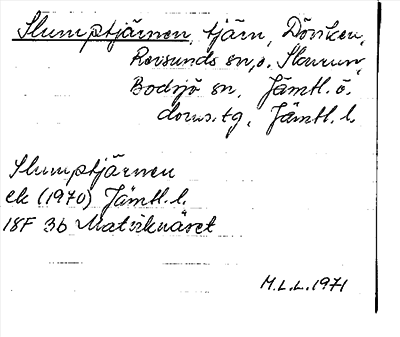 Slumptjärnen, tjärn, Döviken,
Revsunds sn, o. Stavren,
Bodsjö sn, Jämtl. ö.
doms.tg, Jämtl. l.
Slumptjärnen
ek (1970) Jämtl. l.
18F 3b Matviknäset
M.L.L. 1971